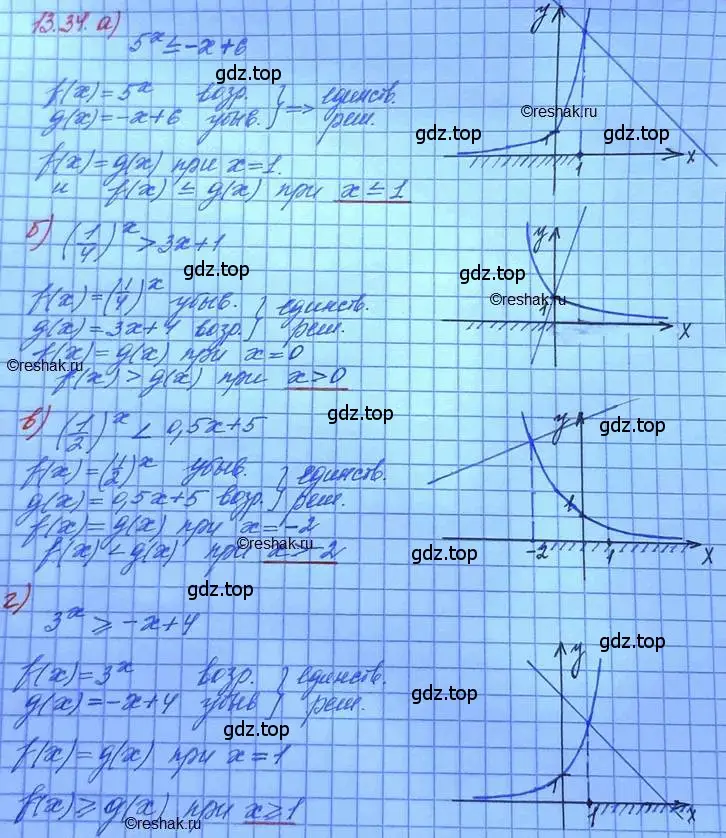 13.34. а)
5ˣ ≤ -x+6
f(x) = 5ˣ возр. } => единств.
g(x) = -x+6 убыв. } реш.
f(x) = g(x) при x=1.
и f(x) ≤ g(x) при x ≤ 1
y
1
1
x
б) (1/4)ˣ > 3x+1
f(x) = (1/4)ˣ убыв. } единств.
g(x) = 3x+4 возр. } реш.
f(x) = g(x) при x=0
f(x) > g(x) при x>0
y
1
x
в) (1/2)ˣ < 0,5x+5
f(x) = (1/2)ˣ убыв. } единств.
g(x) = 0,5x+5 возр. } реш.
f(x) = g(x) при x=-2
f(x) < g(x) при x>-2
y
1
-2
1
x
г)
3ˣ ≥ -x+4
f(x) = 3ˣ возр. } единств.
g(x) = -x+4 убыв } реш.
f(x) = g(x) при x=1
f(x) ≥ g(x) при x≥1
y
1
1
x
gdz.top
gdz.top
gdz.top
gdz.top
gdz.top
gdz.top
gdz.top
gdz.top
gdz.top
gdz.top
gdz.top
gdz.top
gdz.top
gdz.top
©reshak.ru
©reshak.ru
©reshak.ru
©reshak.ru
©reshak.ru
©reshak.ru